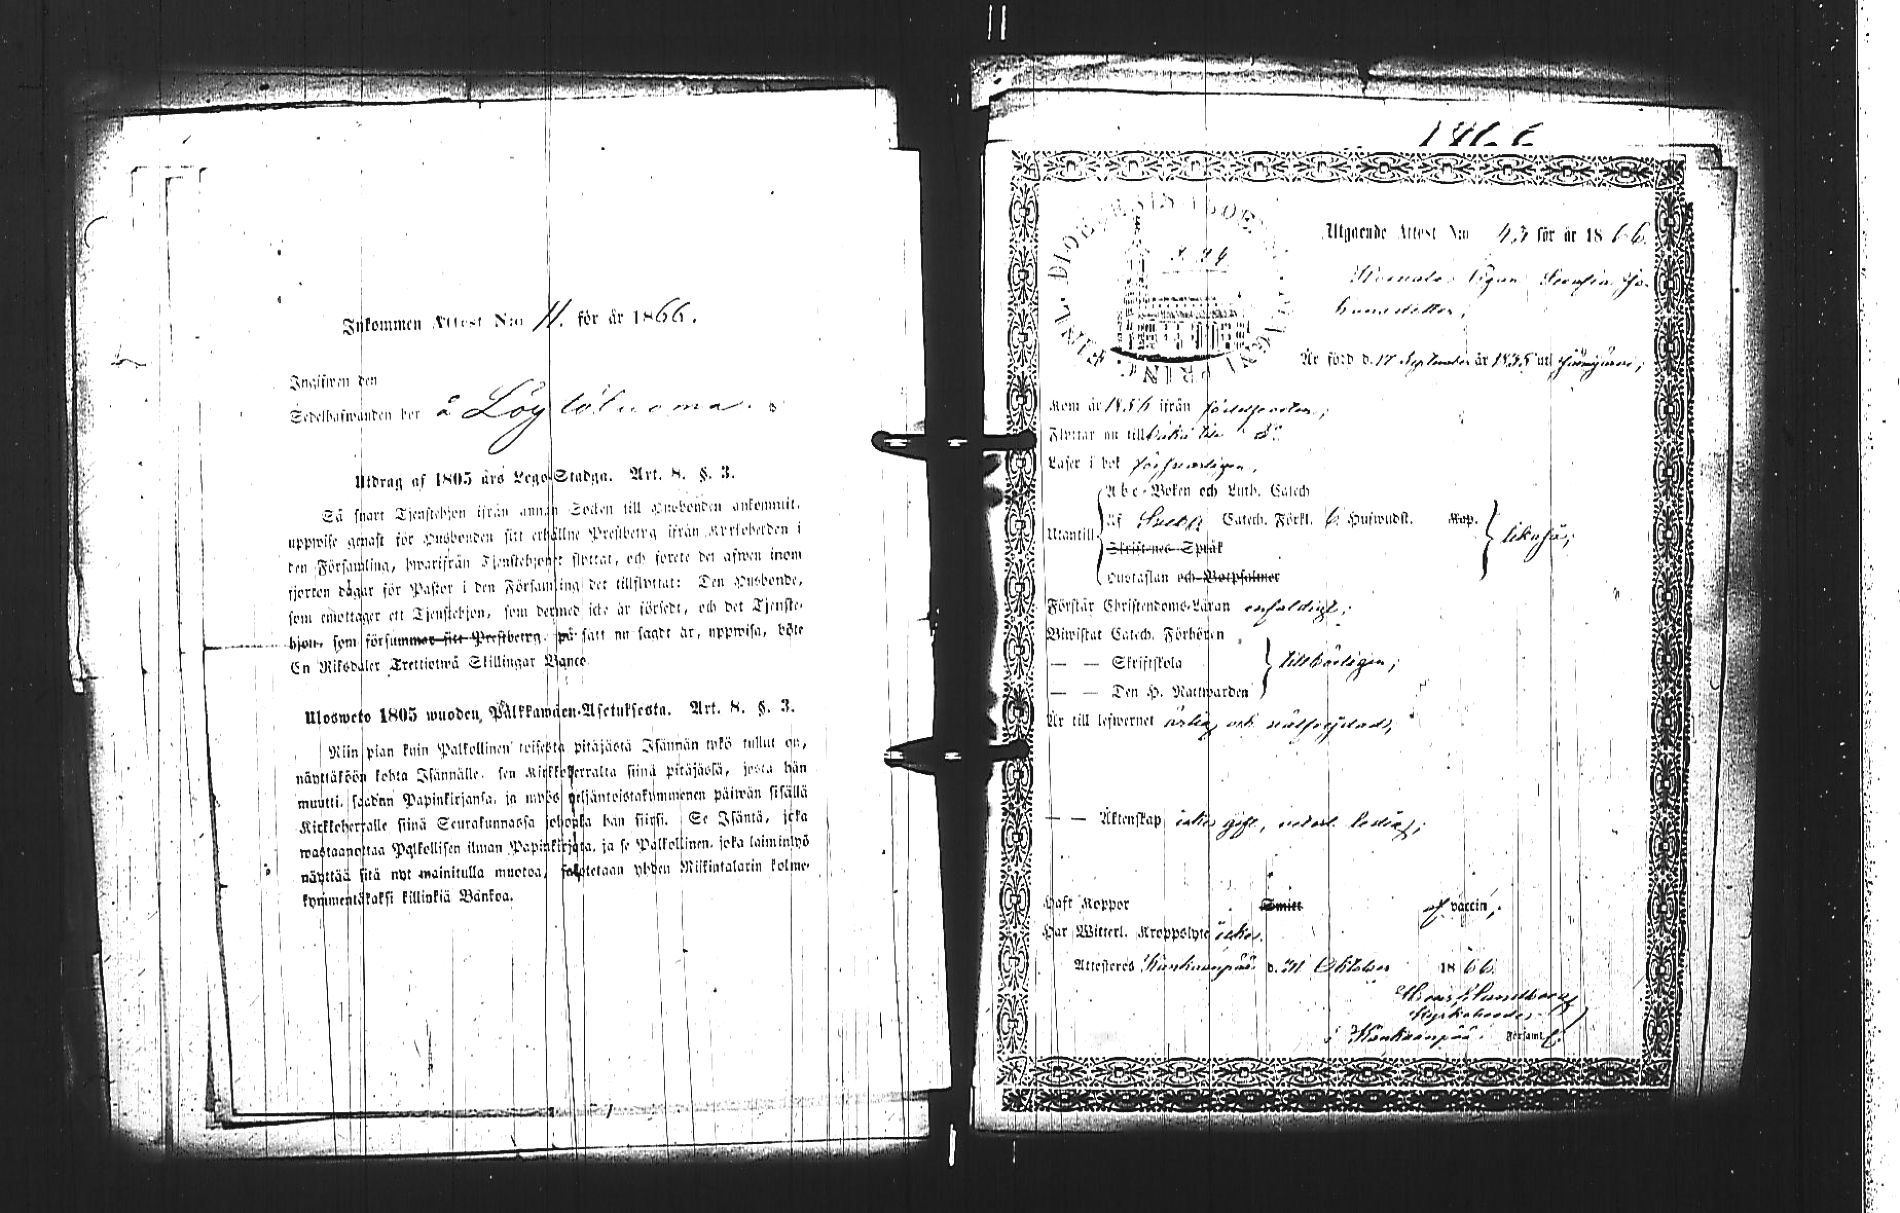 Inkommen Attest N:o 11. för år 1866.
Ingifwen den
Sedelhafwanden bor å Löytöluoma.
Utdrag af 1805 års Lego-Stadga. Art. 8. §. 3.
Så snart Tjenstehjon ifrån annan Socken till Husbonden ankommit,
uppwise genast för Husbonden sitt erhållne Prestbetyg ifrån Kyrkoherden i
den Församling, hwarifrån Tjenstehjonet flyttat, och förete det äfwen inom
fjorton dagar för Pastor i den Församling det tillflyttat: Den Husbonde,
som emottager ett Tjenstehjon, som dermed icke är försedt, och det Tjenste-
hjon, som försummar sitt Prestbetyg, på sätt nu sagdt är, uppwisa, böte
En Riksdaler Trettiotwå Skillingar Banco.
Ulosweto 1805 wuoden Palkkawäen-Asetuksesta. Art. 8. §. 3.
Niin pian kuin Palkollinen toisesta pitäjästä Isännän tykö tullut on,
näyttäköön kohta Isännälle, sen Kirkkoherralta siinä pitäjässä, josta hän
muutti, saadun Papinkirjansa, ja myös neljäntoistakymmenen päiwän sisällä
Kirkkoherralle siinä Seurakunnassa johonka hän siirsi. Se Isäntä, joka
wastaanottaa Palkollisen ilman Papinkirjata, ja se Palkollinen, joka laiminlyö
näyttää sitä nyt mainitulla muotoa, sakotetaan yhden Riikintalarin kolme-
kymmentäkaksi killinkiä Bankoa.
1866
Utgående Attest N:o 43 för år 1866.
S. 94
Sofia Jo-
hansdotter,
Är född d. 17 September år 1835 uti
Kom år 1856 ifrån
Flyttar nu till
Läser i bok försvarligen,
Utantill
Abc-Boken och Luth. Catech
Af Svebil. Catech. Förkl. 6 Hufwudst. Kap.
Skriftenes Språk
Hustaflan och Botpsalmer
likaså;
Förstår Christendoms-Läran enfaldigt;
Biwistat Catech. Förhören
— — Skriftskola
— — Den H. Nattwarden
tillbörligen;
Är till lefwernet ärlig och välfrejdad,
— — Äktenskap icke gift, ledig;
Haft Koppor Smitt af vaccin,
Har Witterl. Kroppslyte icke.
Attesteras Kankaanpää d. 31 Oktober 1866.
Kyrkoherde
i Kankaanpää Församl.